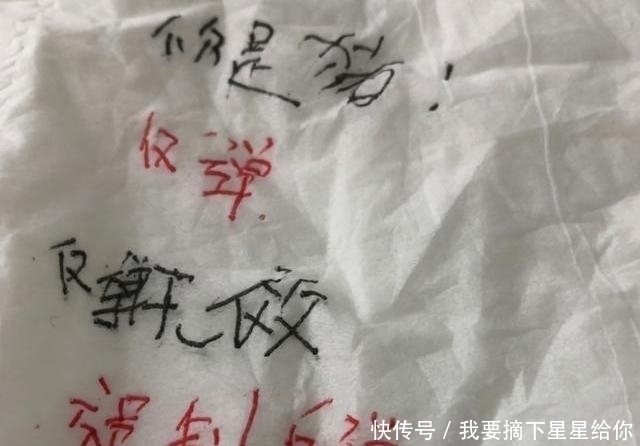 你是猪!
反弹
反弹无效
快传号 / 我要摘下星星给你